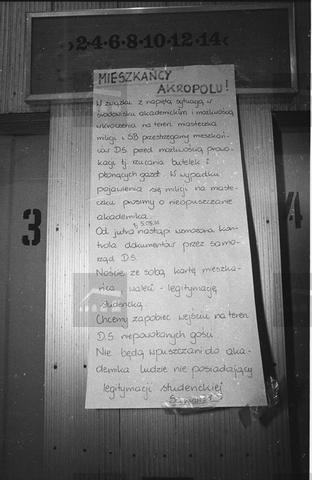 ›2·4·6·8·10·12·14‹
MIESZKAŃCY
AKROPOLU!
W związku z napiętą sytuacją w
środowisku akademickim i możliwością
wkroczenia na teren miasteczka
milicji i SB przestrzegamy mieszkań-
ców DS przed możliwością prowo-
kacji tj. rzucania butelek i
płonących gazet. W wypadku
pojawienia się milicji na miaste-
czku prosimy o nieopuszczanie
akademika.
Od jutra nastąpi wzmożona kon-
trola dokumentów przez samo-
rząd DS.
Noście ze sobą kartę mieszka-
ńca waleń - legitymację
studencką.
Chcemy zapobiec wejściu na teren
DS niepowołanych gości
Nie będą wpuszczani do aka-
demika ludzie nie posiadający
legitymacji studenckiej
3
4